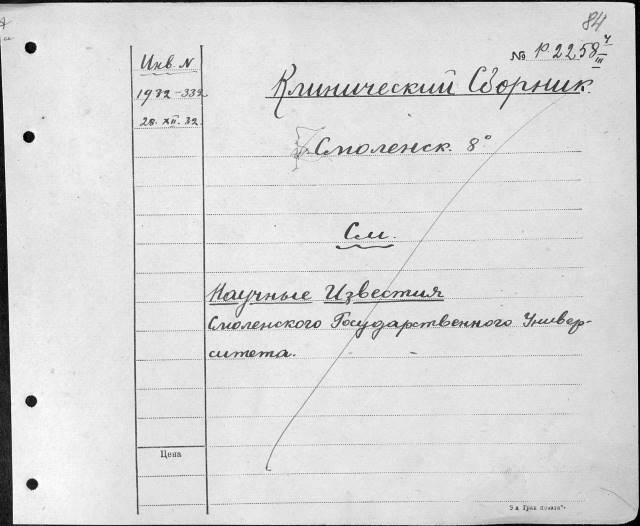 84
№ р. 2258 4/III
Инв. N
Клинический Сборник.
1932-332
28. XII. 32
Смоленск. 8°
См.
Научные Известия
Смоленского Государственного Универ-
ситета.
Цена